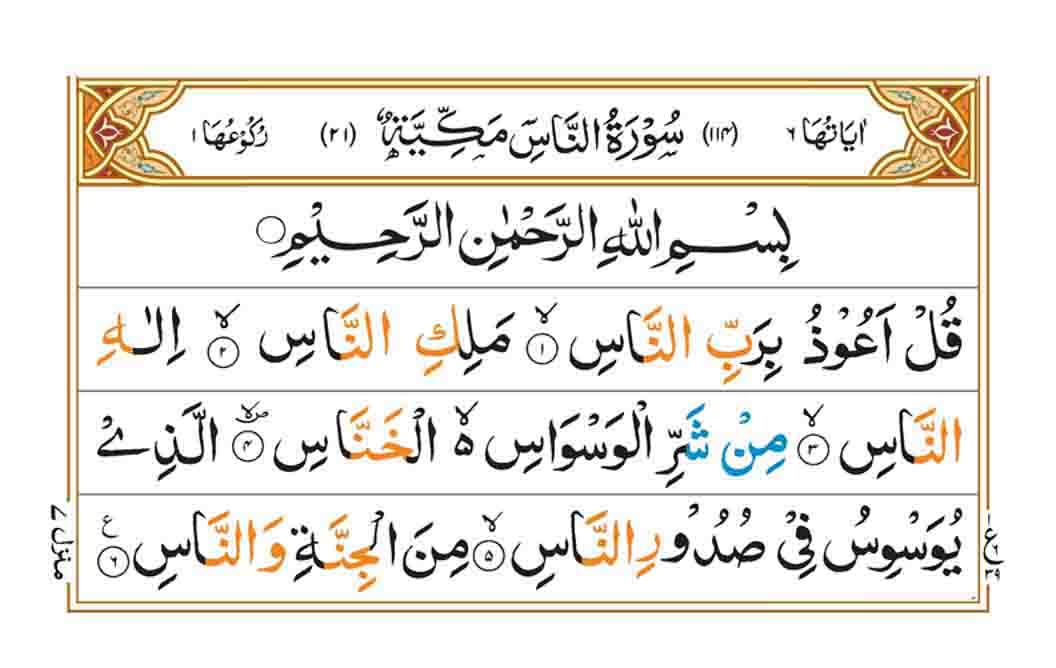 اٰيَاتُهَا ٦ (١١٤) سُوْرَةُ النَّاسِ مَكِّيَّةٌ (٢١) رُكُوْعُهَا ١
بِسْمِ اللّٰهِ الرَّحْمٰنِ الرَّحِيْمِ ○
قُلْ اَعُوْذُ بِرَبِّ النَّاسِ ۙ‏﴿۱﴾ مَلِكِ النَّاسِ ۙ‏﴿۲﴾ اِلٰهِ
النَّاسِ ۙ‏﴿۳﴾ مِنْ شَرِّ الْوَسْوَاسِ ۙ الْخَنَّاسِ ۙ‏﴿۴﴾ الَّذِيْ
يُوَسْوِسُ فِيْ صُدُوْرِ النَّاسِ ۙ‏﴿۵﴾ مِنَ الْجِنَّةِ وَالنَّاسِ ﴿۶﴾ ع
منزل ٧
ع ١ ٦ ٣٩